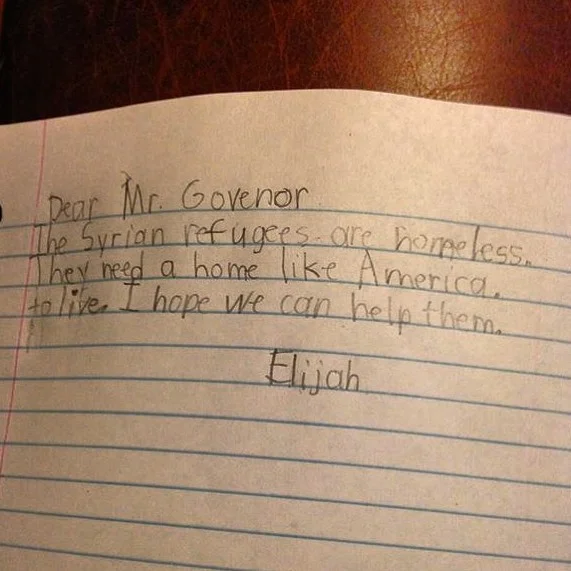 Dear Mr. Govenor
The Syrian refugees are homeless.
They need a home like America.
to live. I hope we can help them.
Elijah